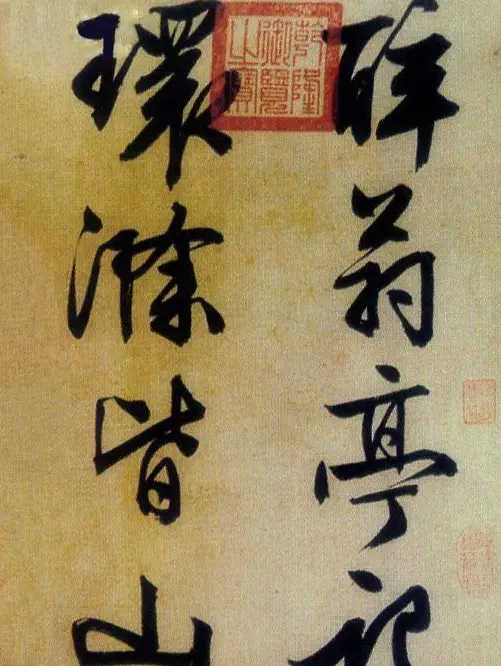 醉翁亭記
環滁皆山
乾隆
御覽
之寶